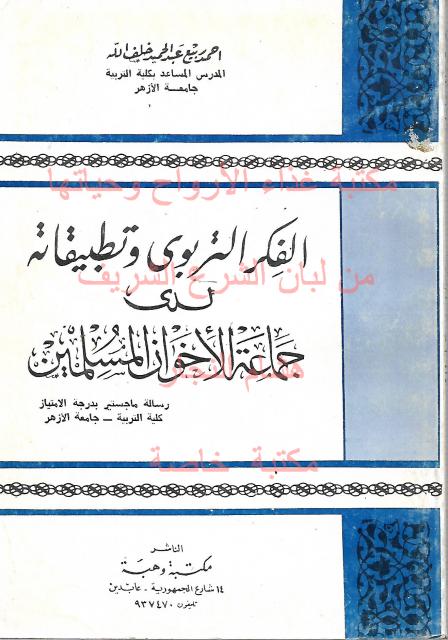 احمد ربيع عبد الحميد خلف الله
المدرس المساعد بكلية التربية
جامعة الأزهر
مكتبة غذاء الأرواح وحياتها
الفكر التربوى وتطبيقاته
من لبان الشرع الشريف
لدى
جماعة الأخوان المسلمين
رسالة ماجستير بدرجة الامتياز
كلية التربية – جامعة الأزهر
مكتبة خاصة
الناشر
مكتبة وهبة
١٤ شارع الجمهورية - عابدين
تليفون ٩٣٧٤٧٠